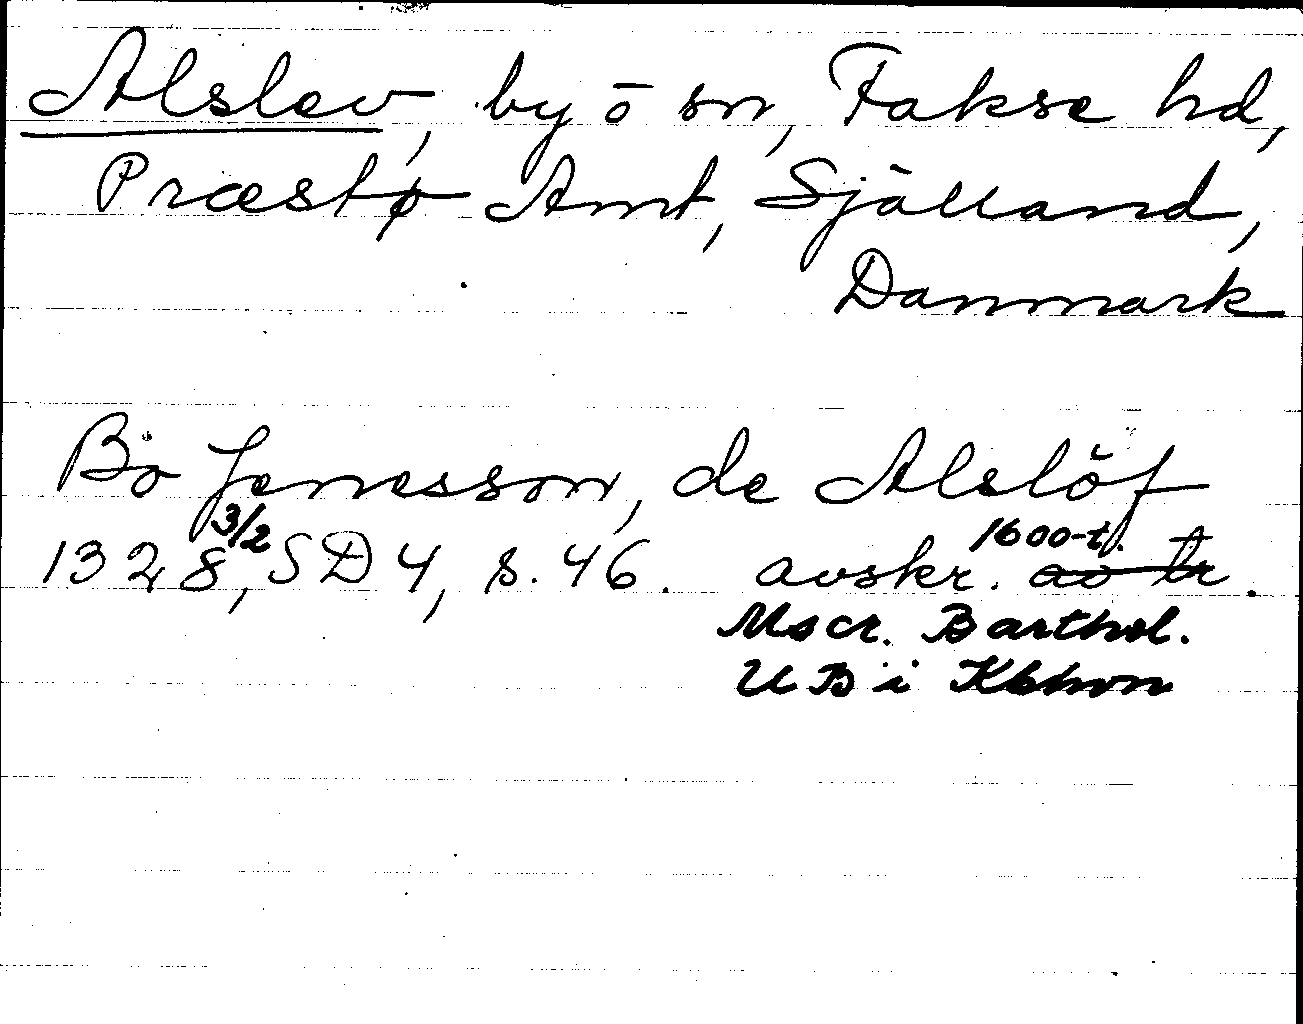 Alslev, by ō sn, Fakse hd,
Præstø Amt, Själland,
Danmark
Bo Jonesson, de Alslöf
1328 3/2, SD 4, s. 46. avskr. 1600-t. av tr.
Mscr. Barthol.
UB i Kbhvn